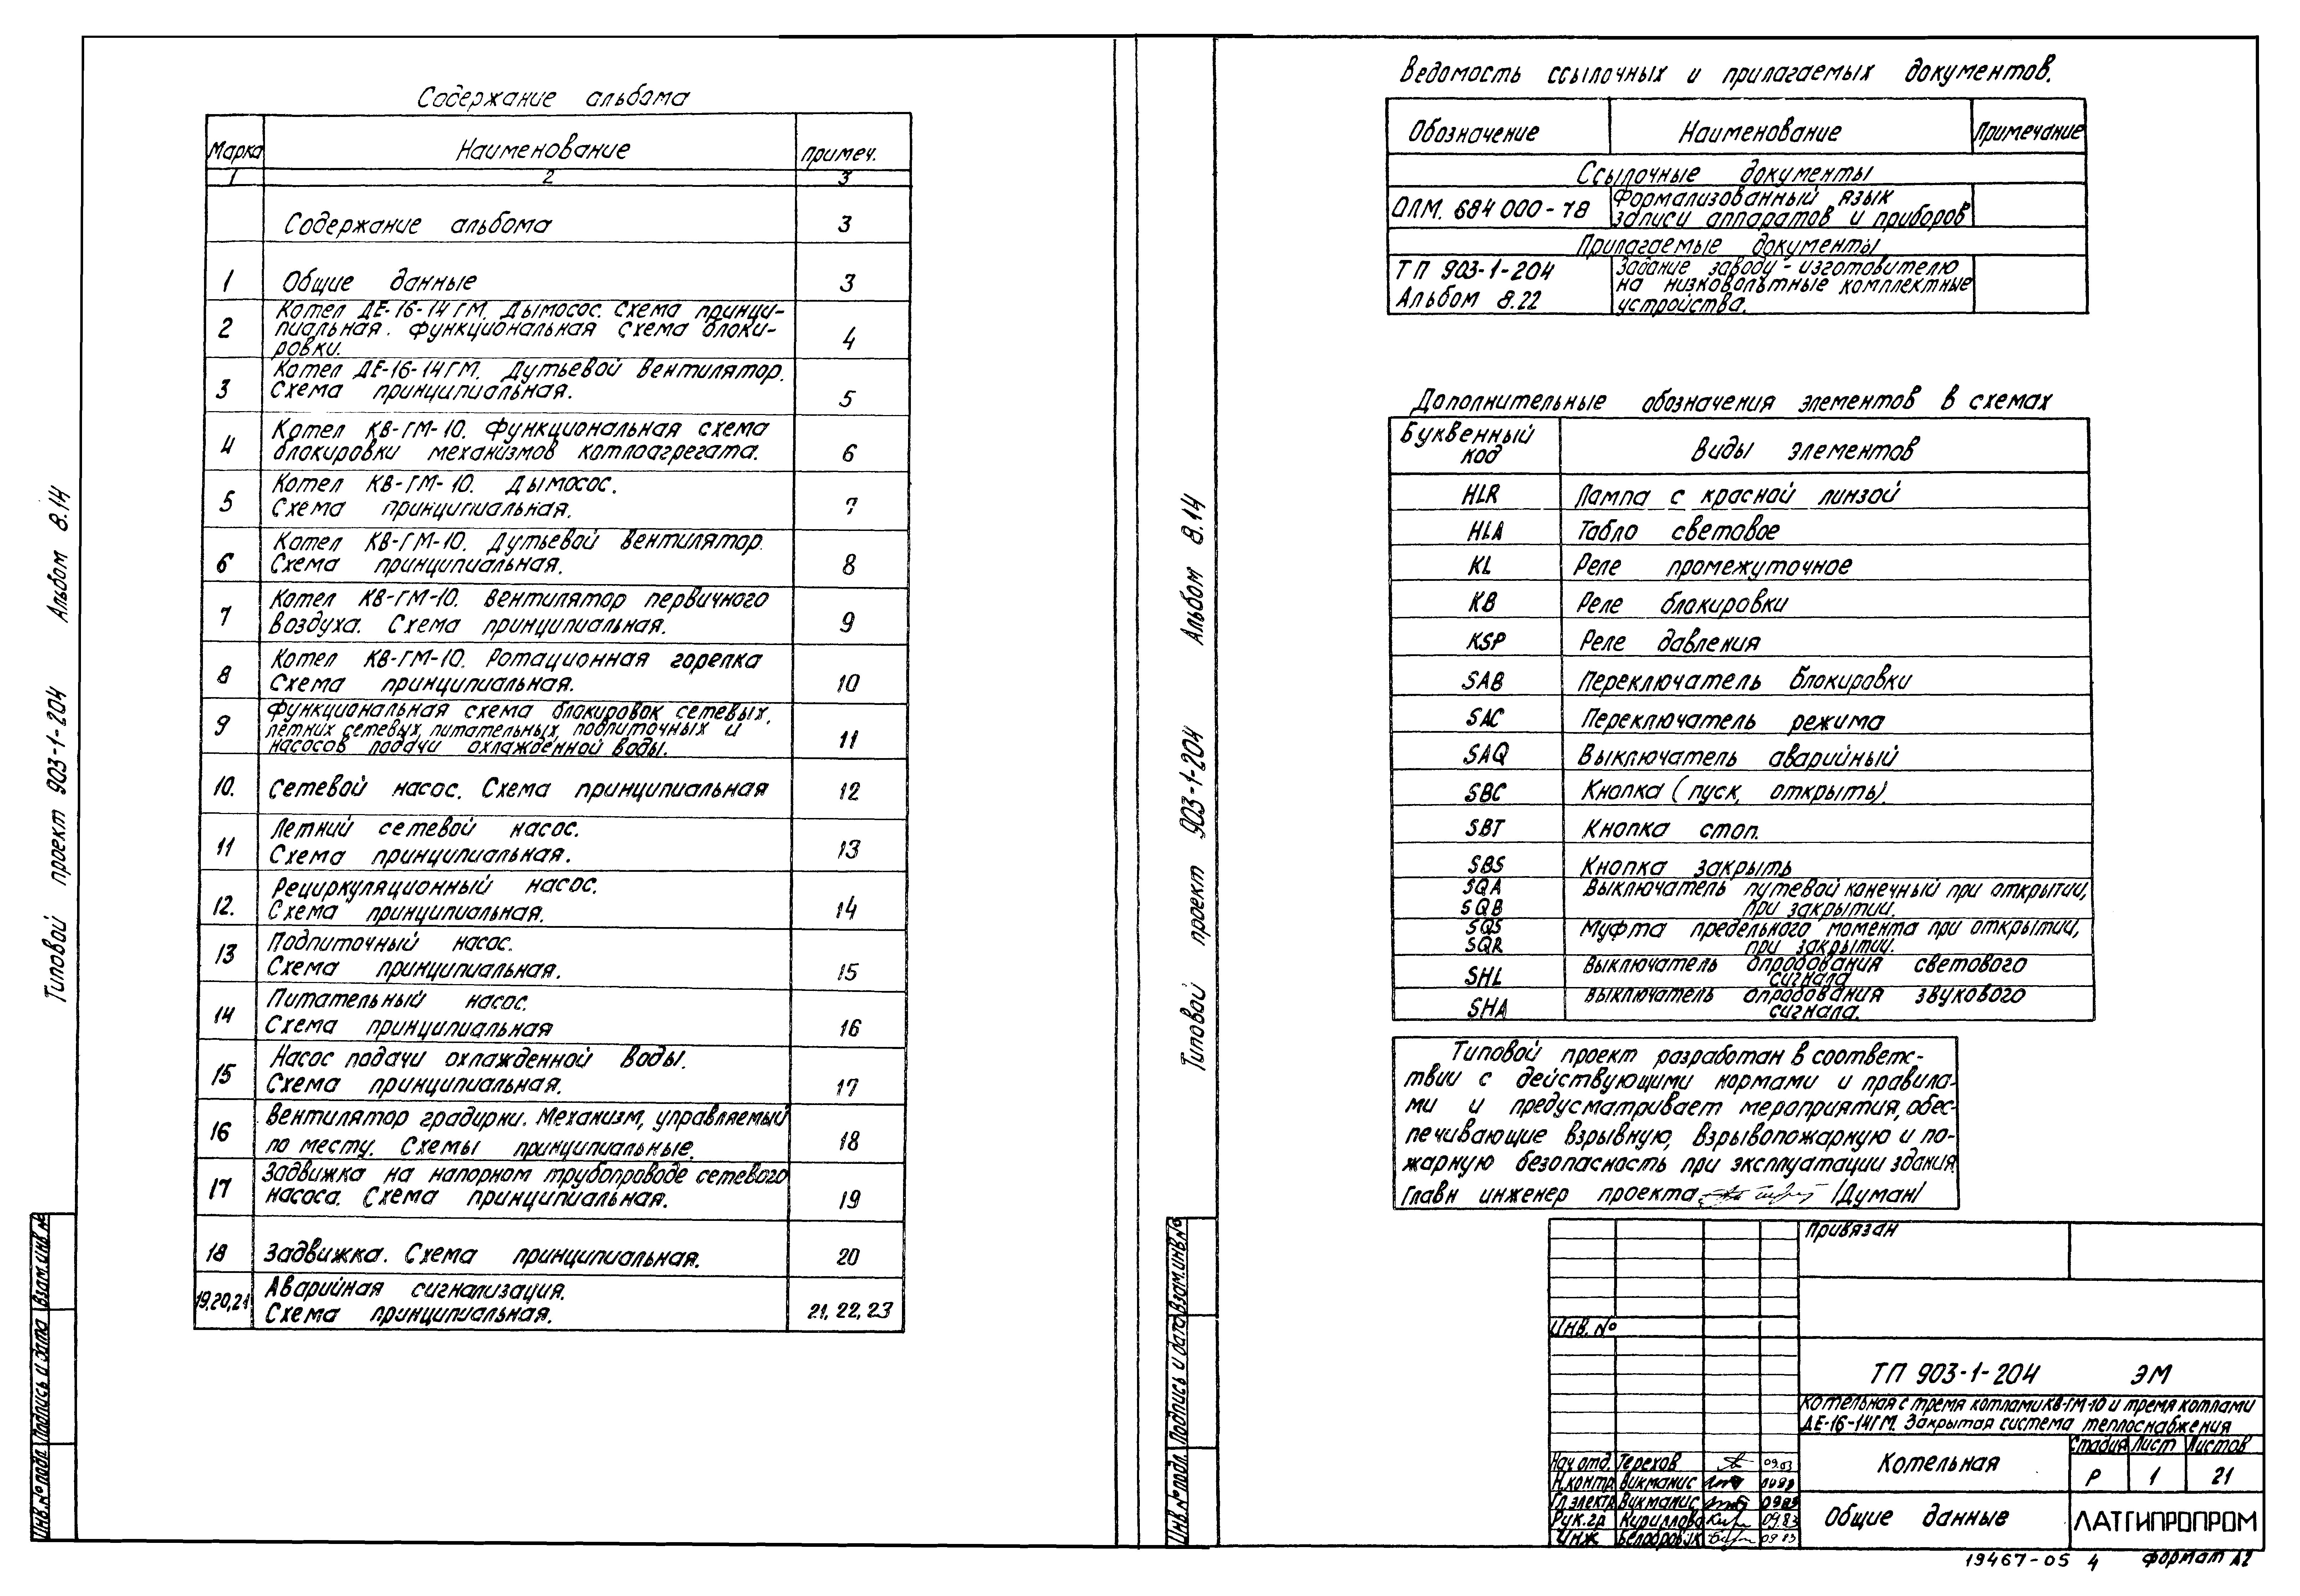 Содержание альбома
Марка Наименование Примеч.
1 2 3
Содержание альбома 3
1 Общие данные 3
2 Котел ДЕ-16-14ГМ. Дымосос. Схема принци-
пиальная. Функциональная схема блоки-
ровки. 4
3 Котел ДЕ-16-14ГМ. Дутьевой вентилятор.
Схема принципиальная. 5
4 Котел КВ-ГМ-10. Функциональная схема
блокировки механизмов котлоагрегата. 6
5 Котел КВ-ГМ-10. Дымосос.
Схема принципиальная. 7
6 Котел КВ-ГМ-10. Дутьевой вентилятор.
Схема принципиальная. 8
7 Котел КВ-ГМ-10. Вентилятор первичного
воздуха. Схема принципиальная. 9
8 Котел КВ-ГМ-10. Ротационная горелка
Схема принципиальная. 10
9 Функциональная схема блокировок сетевых,
летних сетевых, питательных, подпиточных и
насосов подачи охлажденной воды. 11
10. Сетевой насос. Схема принципиальная 12
11 Летний сетевой насос.
Схема принципиальная. 13
12. Рециркуляционный насос.
Схема принципиальная. 14
13 Подпиточный насос.
Схема принципиальная. 15
14 Питательный насос.
Схема принципиальная 16
15 Насос подачи охлажденной воды.
Схема принципиальная. 17
16 Вентилятор градирки. Механизм, управляемый
по месту. Схемы принципиальные. 18
17 Задвижка на напорном трубопроводе сетевого
насоса. Схема принципиальная. 19
18 Задвижка. Схема принципиальная. 20
19,20,21 Аварийная сигнализация.
Схема принципиальная. 21, 22, 23
Типовой проект 903-1-204 Альбом 8.14
Инв.№ подл. Подпись и дата Взам.инв.№
Ведомость ссылочных и прилагаемых документов.
Обозначение Наименование Примечание
Ссылочные документы
ОЛМ. 684 000-78 Формализованный язык
записи аппаратов и приборов
Прилагаемые документы
ТП 903-1-204 Задание заводу-изготовителю
Альбом 8.22 на низковольтные комплектные
устройства.
Дополнительные обозначения элементов в схемах
Буквенный
код Виды элементов
HLR Лампа с красной линзой
HLA Табло световое
KL Реле промежуточное
KB Реле блокировки
KSP Реле давления
SAB Переключатель блокировки
SAC Переключатель режима
SAQ Выключатель аварийный
SBC Кнопка (пуск, открыть).
SBT Кнопка стоп.
SBS Кнопка закрыть
SQA Выключатель путевой конечный при открытии,
SQB при закрытии.
SQS Муфта предельного момента при открытии,
SQR при закрытии.
SHL Выключатель опробования светового
сигнала
SHA Выключатель опробования звукового
сигнала.
Типовой проект разработан в соответс-
твии с действующими нормами и правила-
ми и предусматривает мероприятия, обес-
печивающие взрывную, взрывопожарную и по-
жарную безопасность при эксплуатации здания
Главн инженер проекта /Думан/
Типовой проект 903-1-204 Альбом 8.14
Инв.№ подл. Подпись и дата Взам.инв.№
Привязан
Инв. №
ТП 903-1-204 ЭМ
Котельная с тремя котлами КВ-ГМ-10 и тремя котлами
ДЕ-16-14ГМ. Закрытая система теплоснабжения
Котельная
Стадия Лист Листов
Р 1 21
Общие данные
ЛАТГИПРОПРОМ
Нач отд. Терехов 09.83
Н.контр. Викманис 0983
Гл.электр Викманис 0983
Рук.гр Кириллова 09.83
Инж 09 83
19467-05 4 Формат А2